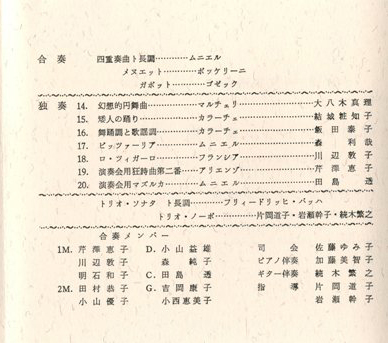 合奏 四重奏曲ト長調…………ムニエル
メヌエット…………ボッケリーニ
ガボット…………ゴゼック
独奏 14. 幻想的円舞曲…………マルチェリ…………大八木真理
15. 矮人の踊り…………カラーチェ…………結城粧知子
16. 舞踊調と歌謡調…………カラーチェ…………飯田泰子
17. ビッツァーリア…………ムニエル…………森利哉
18. ロ・フィガーロ…………フランレア…………川辺敦子
19. 演奏会用狂詩曲第二番…………アリエンゾ…………芹澤恵子
20. 演奏会用マズルカ…………ムニエル…………田島透
トリオ・ソナタ ト長調…………フリィードリッヒ・バッハ
トリオ・ノーボ…………片岡道子・岩瀬幹子・続木繁之
合奏メンバー
1M. 芹澤恵子 D. 小山益雄 司会 佐藤ゆみ子
川辺敦子 森純子 ピアノ伴奏 加藤美智子
明石和子 C. 田島透 ギター伴奏 続木繁之
2M. 田村恭子 G. 吉岡康子 指導 片岡道子
小山優子 小西恵美子 岩瀬幹子